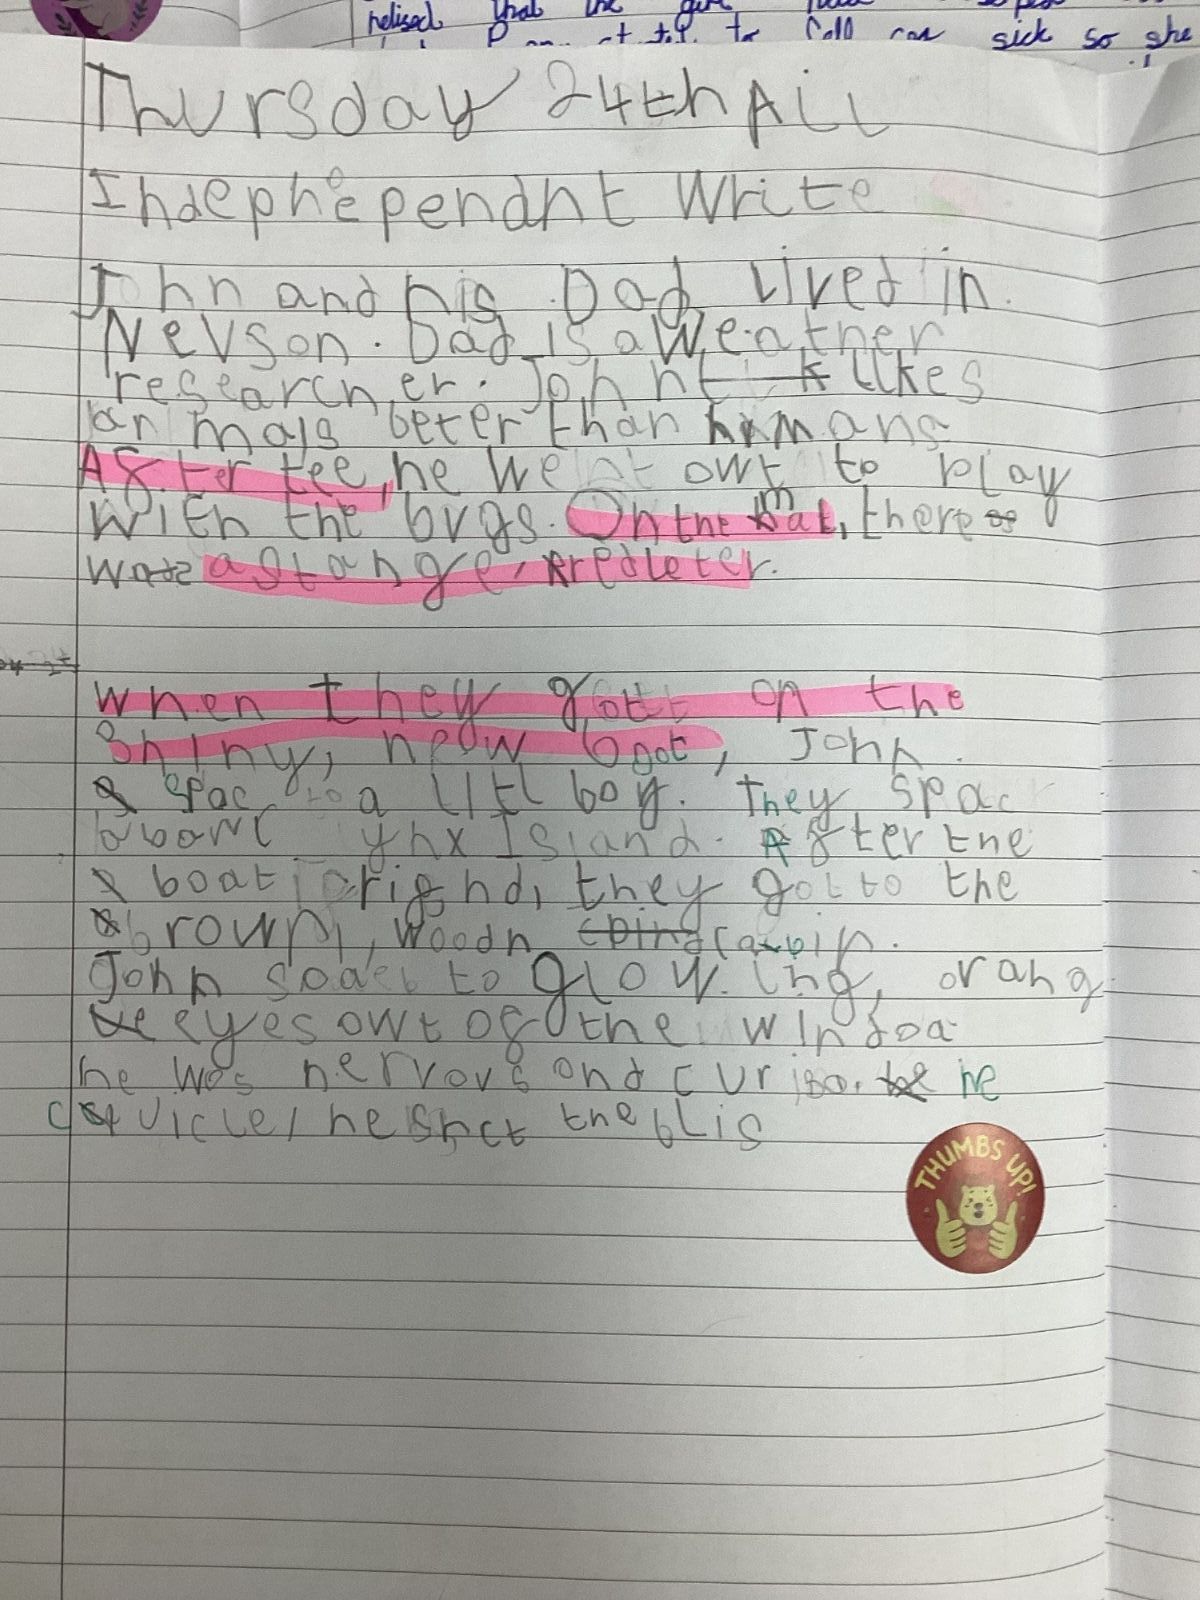 relised that the girl
sick so she
Thursday 24th Ail
Indephependnt write
John and his Dad lived in.
Nevson. Dad is a Weather
researcher. John likes
an mals beter than humans
After tee, he went owt to play
with the bugs. On the mat, there
was a stange, red leter.
when they gott on the
Shiny, new boat, John
spac to a litl boy. They spac
abowt ynx Island. After the
boat arighnd, they got to the
brown, woodn cabin.
John soael to glowing, orang
eyes owt of the windoa
he was nervous and curiso. he
cuicle, he shct the blis
THUMBS UP!